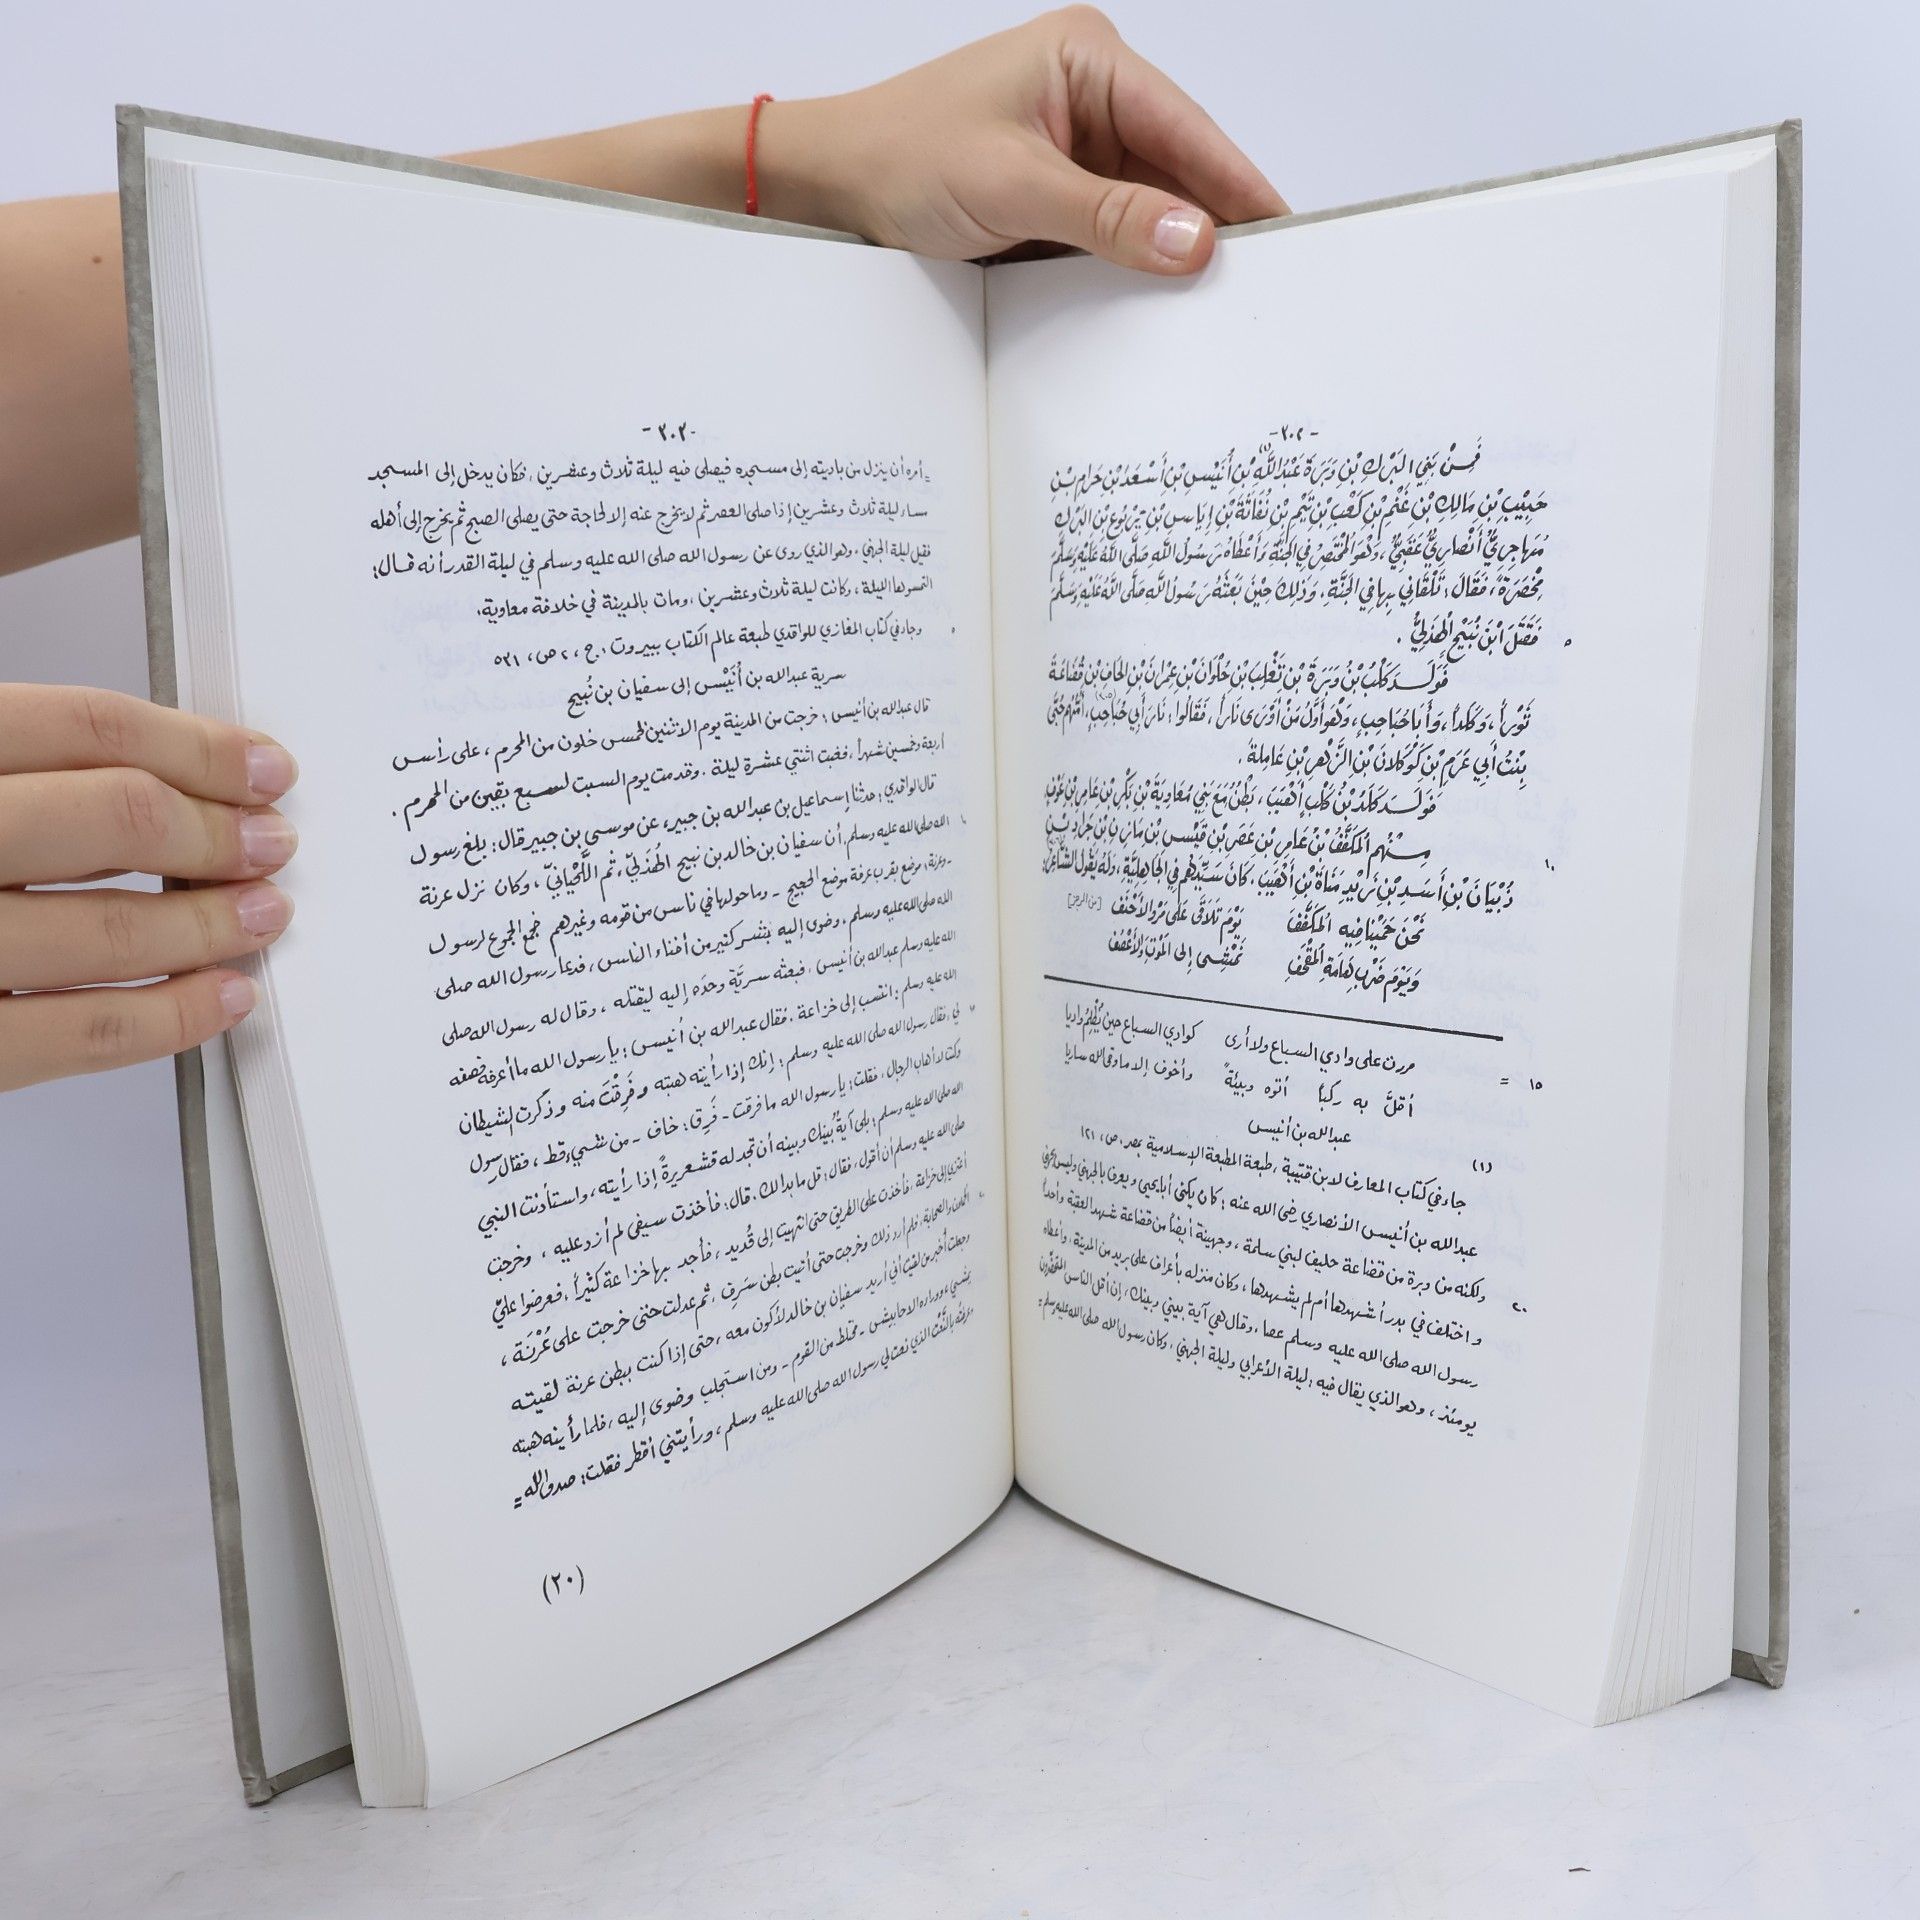 - ٣٠٢ -
فَمِنْ بَنِي البَرْكِ بْنِ وَبَرَةَ عَبْدُ اللَّهِ (١) بْنِ أُنَيْسِ بْنِ أَسْعَدَ بْنِ حَرَامِ بْنِ
حَبِيْبِ بْنِ مَالِكِ بْنِ غَنْمِ بْنِ كَعْبِ بْنِ تَيْمِ بْنِ نُفَاثَةَ بْنِ إِيَاسِ بْنِ يَرْبُوعِ بْنِ البَرْكِ
مُهَاجِرِيٌّ أَنْصَارِيٌّ عَقَبِيٌّ، وَهُوَ المُخْتَصِرُ فِي الجَنَّةِ وَأَعْطَاهُ رَسُولُ اللَّهِ صَلَّى اللَّهُ عَلَيْهِ وَسَلَّمَ
مِخْصَرَةً، فَقَالَ: تَلْقَانِي بِهَا فِي الجَنَّةِ. وَذَلِكَ حِيْنَ بَعَثَهُ رَسُولُ اللَّهِ صَلَّى اللَّهُ عَلَيْهِ وَسَلَّمَ
فَقَتَلَ ابْنَ نُبَيْحٍ الهُذَلِيَّ. ٥
فَوَلَدَ كَلْبُ بْنُ وَبَرَةَ بْنِ تَغْلِبَ بْنِ حُلْوَانَ بْنِ عِمْرَانَ بْنِ الحَافِ بْنِ قُضَاعَةَ
ثَوْراً، وَكَلَداً، وَأَبَا حُبَاحِبٍ، وَهُوَ أَوَّلُ مَنْ أَوْرَى نَاراً، فَقَالُوا: نَارُ أَبِي حُبَاحِبٍ، أُمُّهُمْ حُبَّى
بِنْتُ أَبِي عَرَمِ بْنِ كَوْكَلَانَ بْنِ الزَّهْرِ بْنِ عَامِلَةَ.
فَوَلَدَ كَلَدُ بْنُ كَلْبٍ أَهْيَبَ، بَطْنٌ مَعَ بَنِي مُعَاوِيَةَ بْنِ بَكْرِ بْنِ عَامِرِ بْنِ عَوْفٍ
مِنْهُم المُكَفَّفُ بْنُ عَامِرِ بْنِ عَصَرِ بْنِ قَيْسِ بْنِ مَازِنِ بْنِ جَرَادِ بْنِ
ذُبْيَانَ بْنِ أَسَدِ بْنِ زَيْدِ مَنَاةَ بْنِ أَهْيَبَ، كَانَ سَيِّدَهُم فِي الجَاهِلِيَّةِ، وَلَهُ يَقُولُ الشَّاعِرُ: ١٠
نَحْنُ حَمَيْنَا فِيهِ المُكَفَّفَ يَوْمَ تَلَاقَى عَلَى مَرْوِ الأَحْنَفِ [من الرجز]
وَيَوْمَ ضَرْبِ هَامَةِ المُقْحَفِ نَمْشِي إِلَى المَوْتِ
مررت على وادي السباع ولا أرى كوادي السباع حين يُظْلِمُ واديا
= ١٥ أقلَّ به ركباً أتوه وبيئةً وأخوف إلا ما وقى الله ساريا
عبد الله بن أنيس
(١) جاء في كتاب المعارف لابن قتيبة، طبعة المطبعة الإسلامية بمصر، ص، ١٢١
عبد الله بن أنيس الأنصاري رضي الله عنه: كان يكنى أبا يحيى ويعرف بالجهني وليس بجهني
ولكنه من وبرة من قضاعة حليف لبني سلمة، وجهينة أيضاً من قضاعة شهد العقبة وأحداً
٢٠ واختلف في بدر أشهدها أم لم يشهدها، وكان منزله بأعراف على بريد من المدينة، وأعطاه
رسول الله صلى الله عليه وسلم عصا، وقال هي آية بيني وبينك، إن أقل الناس المتخصّرون
يومئذ، وهو الذي يقال فيه: ليلة الأعرابي وليلة الجهني، وكان رسول الله صلى الله عليه وسلم =
- ٣٠٣ -
= أمره أن ينزل من باديته إلى مسجده فيصلى فيه ليلة ثلاث وعشرين، فكان يدخل إلى المسجد
مساء ليلة ثلاث وعشرين إذا صلى العصر ثم لا يخرج عنه إلا لحاجة حتى يصلى الصبح ثم يخرج إلى أهله
فقيل ليلة الجهني. وهو الذي روى عن رسول الله صلى الله عليه وسلم في ليلة القدر أنه قال:
التمسوها الليلة، وكانت ليلة ثلاث وعشرين، ومات بالمدينة في خلافة معاوية.
٥ وجاء في كتاب المغازي للواقدي طبعة عالم الكتاب ببيروت، ج، ٢ ص، ٥٣١
سرية عبد الله بن أُنَيْس إلى سفيان بن نُبيح
قال عبد الله بن أنيس: خرجت من المدينة يوم الاثنين لخمس خلون من المحرم، على رأس
أربعة وخمسين شهراً، فغبت اثنتي عشرة ليلة. وقدمت يوم السبت لسبع بقين من المحرم.
قال الواقدي: حدثنا إسماعيل بن عبد الله بن جبير، عن موسى بن جبير قال: بلغ رسول
١٠ الله صلى الله عليه وسلم أن سفيان بن خالد بن نبيح الهُذَليّ، ثم اللَّحْيانيّ، وكان نزل عرنة
- وعرنة: موضع بقرب عرفة موضع الحجيج - وما حولها في ناس من قومه وغيرهم فجمع الجموع لرسول
الله صلى الله عليه وسلم، وضوى إليه بشر كثير من أفناء الناس، فدعا رسول الله صلى
الله عليه وسلم عبد الله بن أنيس، فبعثه سريَّة وحدَه إليه ليقتله، وقال له رسول الله صلى
الله عليه وسلم: انتسب إلى خزاعة. فقال عبد الله بن أُنيس: يا رسول الله ما أعرفه فصفه
١٥ لي، فقال رسول الله صلى الله عليه وسلم: إنك إذا رأيته هبته وفَرِقْتَ منه وذكرت الشيطان
وكنت لا أهاب الرجال، فقلت: يا رسول الله ما فرقت - فَرِق: خاف - من شيء قط، فقال رسول
الله صلى الله عليه وسلم: بلى آيةُ بينك وبينه أن تجد له قشعريرةً إذا رأيته، واستأذنت النبي
صلى الله عليه وسلم أن أقول، فقال: قل ما بدا لك. قال: فأخذت سيفي لم أزد عليه، وخرجت
أعتزي إلى خزاعة، فأخذت على الطريق حتى انتهيت إلى قُديد، فأجد بها خزاعة كثيراً، فعرضوا عليّ
٢٠ الحملان والصحابة، فلم أرد ذلك وخرجت حتى أتيت بطن سَرِف، ثم عدلت حتى خرجت على عُرْنَة،
وجعلت أخبر من لقيت أني أريد سفيان بن خالد لأكون معه، حتى إذا كنت ببطن عرنة لقيته
يمشي، ووراءه الاحابيش - مختلط من القوم - ومن استجلب وضوى إليه، فلما رأيته هبته
وعرفته بالنَّعْت الذي نعت لي رسول الله صلى الله عليه وسلم، ورأيتني أقطر فقلت: صدق الله =
(٢٠)